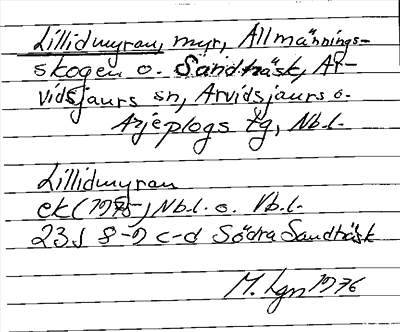 Lillidmyran, myr, Allmännings-
skogen o. Sandträsk, Ar-
vidsjaurs sn, Arvidsjaurs o.
Arjeplogs tg, Nb.l.
Lillidmyran
ek (1975) Nb.l. o. Vb.l.
23J 8-9 c-d Södra Sandträsk
M. Lgn 1976